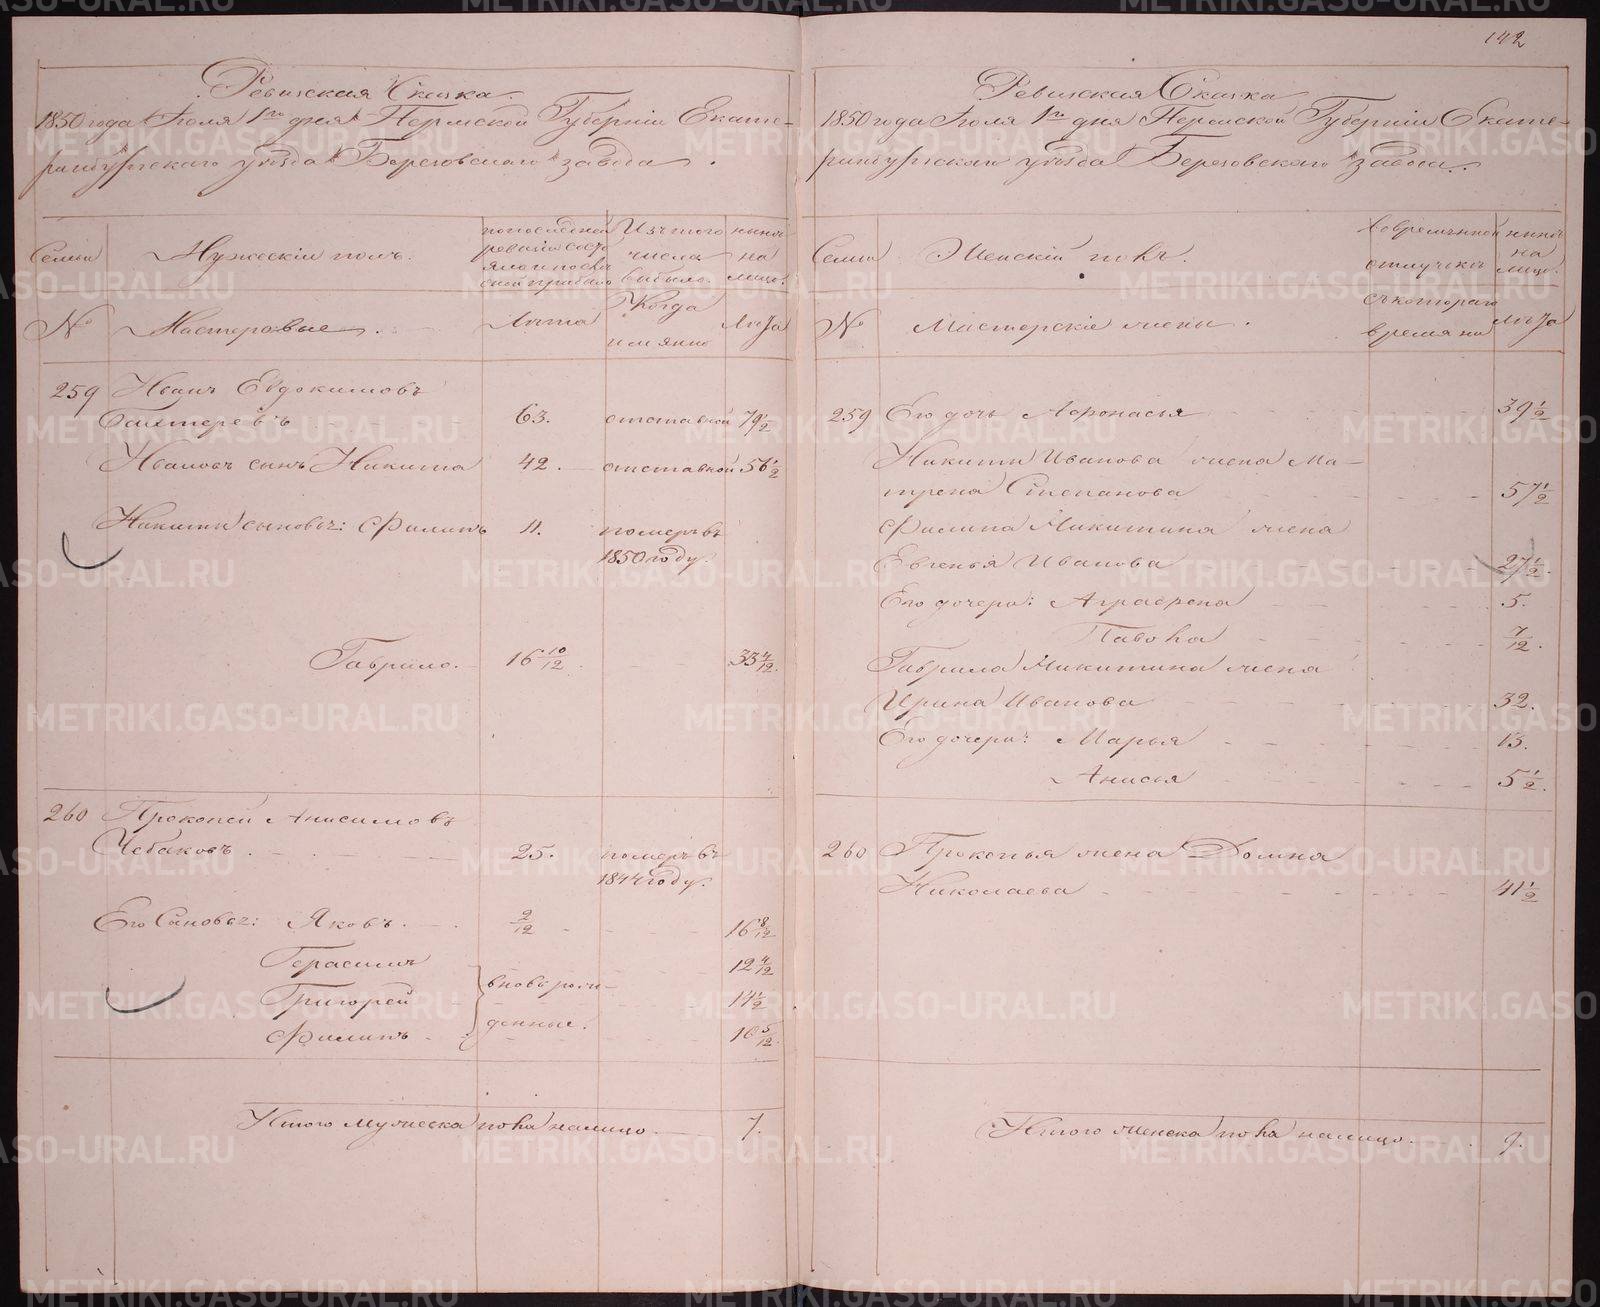 142
Ревизская Сказка.
1850 года Июля 1го дня Пермской Губерніи Екате-
ринбургскаго уѣзда Березовскаго завода.
Семьи
Мужескій полъ.
по последней
ревизіи состо
яло и после
оной прибыло
Изъ того
числа
выбыло.
нынѣ
на
лицо.
№
Мастеровые
Лѣта
Когда
именно
Лѣта
259 Иванъ Евдокимовъ
63. отставной 79 1/2
Ивановъ сынъ Никита 42. отставной 56 1/2
Никиты сыновья: Филипъ 11. померъ въ
1850 году.
Гаврило. 16 10/12 33 4/12.
260 Прокопей Анисимовъ
Чебаковъ 25. померъ въ
1844 году.
Его Сыновья: Яковъ. 2/12 16 8/12
Герасимъ 12 4/12
Григорей вновь рож- 14 1/2
Филипъ денные. 10 5/12
Итого мужеска пола налицо 7.
Ревизская Сказка
1850 года Июля 1го дня Пермской Губерніи Екате-
ринбургскаго уѣзда Березовскаго завода.
Семьи
Женскій полъ.
во временной
отлучкѣ
нынѣ
на
лицо.
№
Мастерскіе жены.
съ котораго
времяни
Лѣта
259 Его дочь Афонасья 39 1/2
Никиты Иванова жена Ма-
трена Степанова 57 1/2
Филипа Никитина жена
Евгенья Иванова 27 1/2.
Его дочери: Аграфена 5.
7/12.
Гаврила Никитина жена
Ирина Иванова 32.
Его дочери: Марья 13.
Анисья 5 1/2.
260 Прокопья жена Домна
Николаева 41 1/2
Итого женска пола налицо. 9.
METRIKI.GASO-URAL.RU